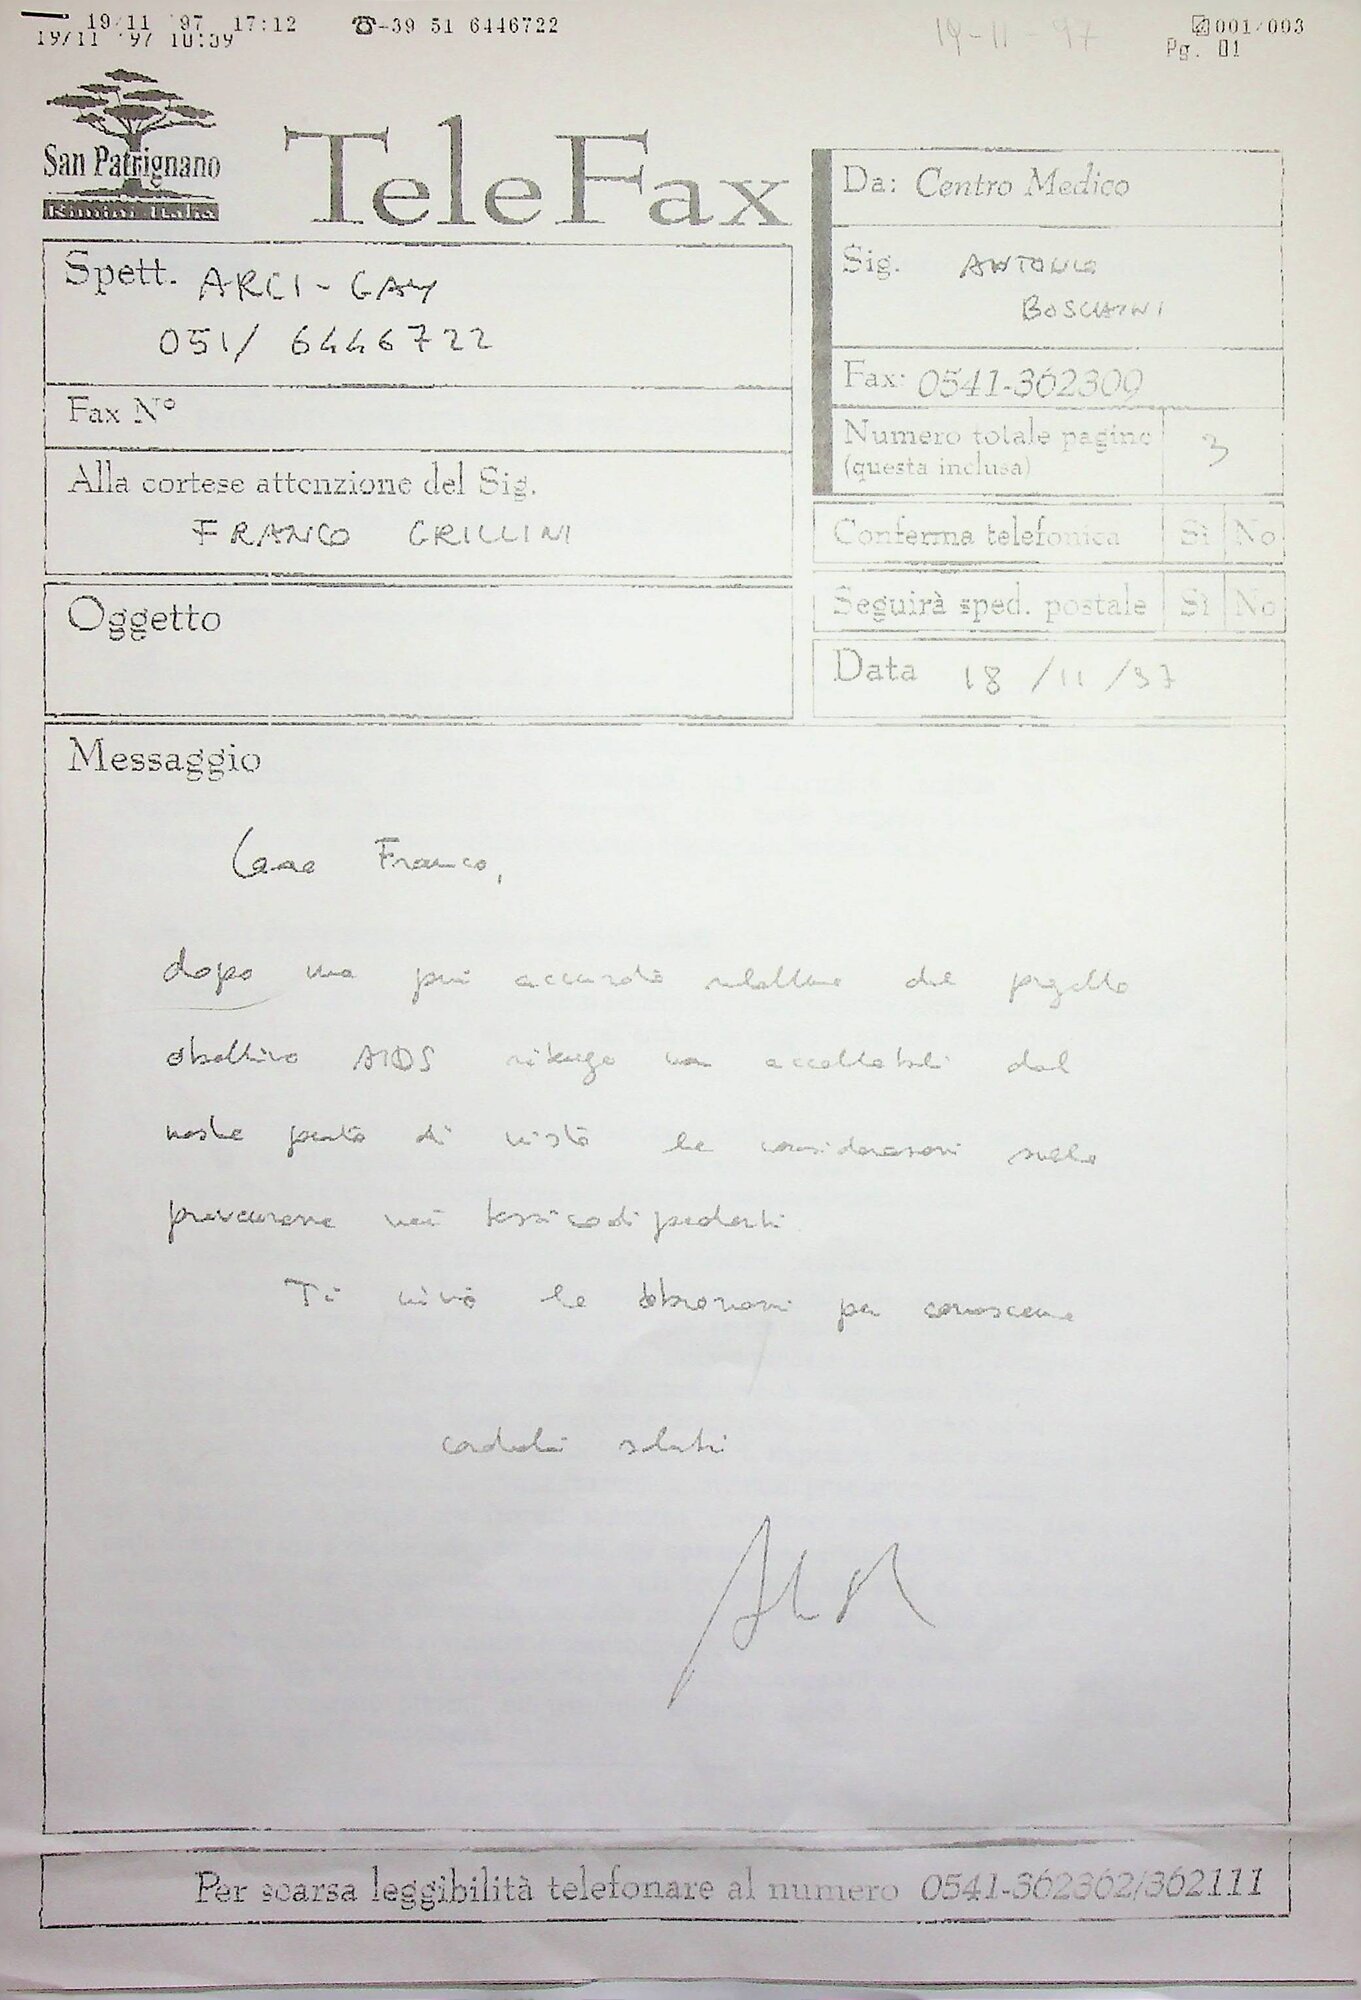 19/11 '97 17:12 ☎-39 51 6446722 001/003
19/11 '97 Pg. 01
19-11-97
San Patrignano
Rimini Italia
TeleFax
Da: Centro Medico
Sig. ANTONIO
BOSCHINI
Fax: 0541-362309
Numero totale pagine 3
(questa inclusa)
Conferma telefonica Sì No
Seguirà sped. postale Sì No
Data 18/11/97
Spett. ARCI-GAY
051/ 6446722
Fax N°
Alla cortese attenzione del Sig.
FRANCO GRILLINI
Oggetto
Messaggio
Caro Franco,
dopo una più accurata del progetto
obiettivo AIDS ritengo non accettabili dal
nostro punto di vista le considerazioni sulla
prevenzione nei tossicodipendenti.
Ti invio le per conoscenza
cordiali saluti
Per scarsa leggibilità telefonare al numero 0541-362362/362111